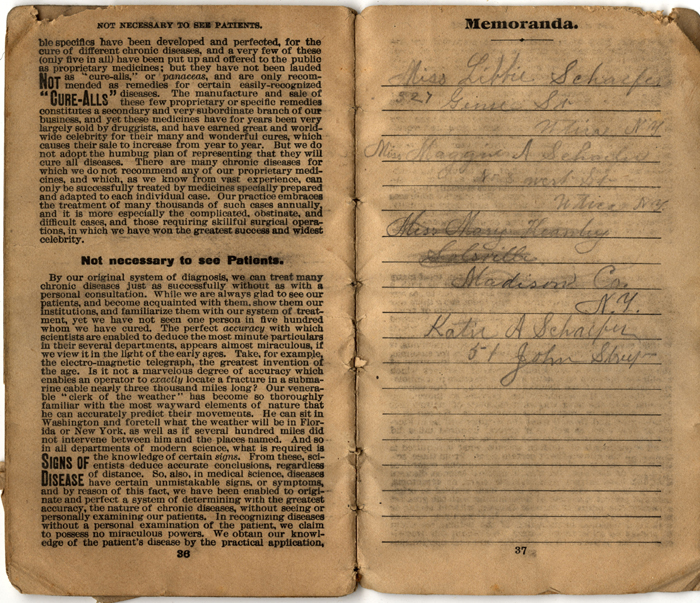 NOT NECESSARY TO SEE PATIENTS.
ble specifics have been developed and perfected, for the
cure of different chronic diseases, and a very few of these
(only five in all) have been put up and offered to the public
as proprietary medicines; but they have not been lauded
NOT as "cure-alls," or panaceas, and are only recom-
mended as remedies for certain easily-recognized
"CURE-ALLS" diseases. The manufacture and sale of
these few proprietary or specific remedies
constitutes a secondary and very subordinate branch of our
business, and yet these medicines have for years been very
largely sold by druggists, and have earned great and world-
wide celebrity for their many and wonderful cures, which
causes their sale to increase from year to year. But we do
not adopt the humbug plan of representing that they will
cure all diseases. There are many chronic diseases for
which we do not recommend any of our proprietary medi-
cines, and which, as we know from vast experience, can
only be successfully treated by medicines specially prepared
and adapted to each individual case. Our practice embraces
the treatment of many thousands of such cases annually,
and it is more especially the complicated, obstinate, and
difficult cases, and those requiring skillful surgical opera-
tions, in which we have won the greatest success and widest
celebrity.
Not necessary to see Patients.
By our original system of diagnosis, we can treat many
chronic diseases just as successfully without as with a
personal consultation. While we are always glad to see our
patients, and become acquainted with them, show them our
institutions, and familiarize them with our system of treat-
ment, yet we have not seen one person in five hundred
whom we have cured. The perfect accuracy with which
scientists are enabled to deduce the most minute particulars
in their several departments, appears almost miraculous, if
we view it in the light of the early ages. Take, for example,
the electro-magnetic telegraph, the greatest invention of
the age. Is it not a marvelous degree of accuracy which
enables an operator to exactly locate a fracture in a subma-
rine cable nearly three thousand miles long? Our venera-
ble "clerk of the weather" has become so thoroughly
familiar with the most wayward elements of nature that
he can accurately predict their movements. He can sit in
Washington and foretell what the weather will be in Flor-
ida or New York, as well as if several hundred miles did
not intervene between him and the places named. And so
in all departments of modern science, what is required is
SIGNS OF the knowledge of certain signs. From these, sci-
entists deduce accurate conclusions, regardless
DISEASE of distance. So, also, in medical science, diseases
have certain unmistakable signs, or symptoms,
and by reason of this fact, we have been enabled to origi-
nate and perfect a system of determining with the greatest
accuracy, the nature of chronic diseases, without seeing or
personally examining our patients. In recognizing diseases
without a personal examination of the patient, we claim
to possess no miraculous powers. We obtain our knowl-
edge of the patient's disease by the practical application,
36
Memoranda.
Miss Libbie Schaefer
527 St
Utica N.Y
Miss Maggie A
West St
Utica N.Y.
Miss Mary
Madison Co.
N.Y.
Katie A Schaefer
51 John Street
37